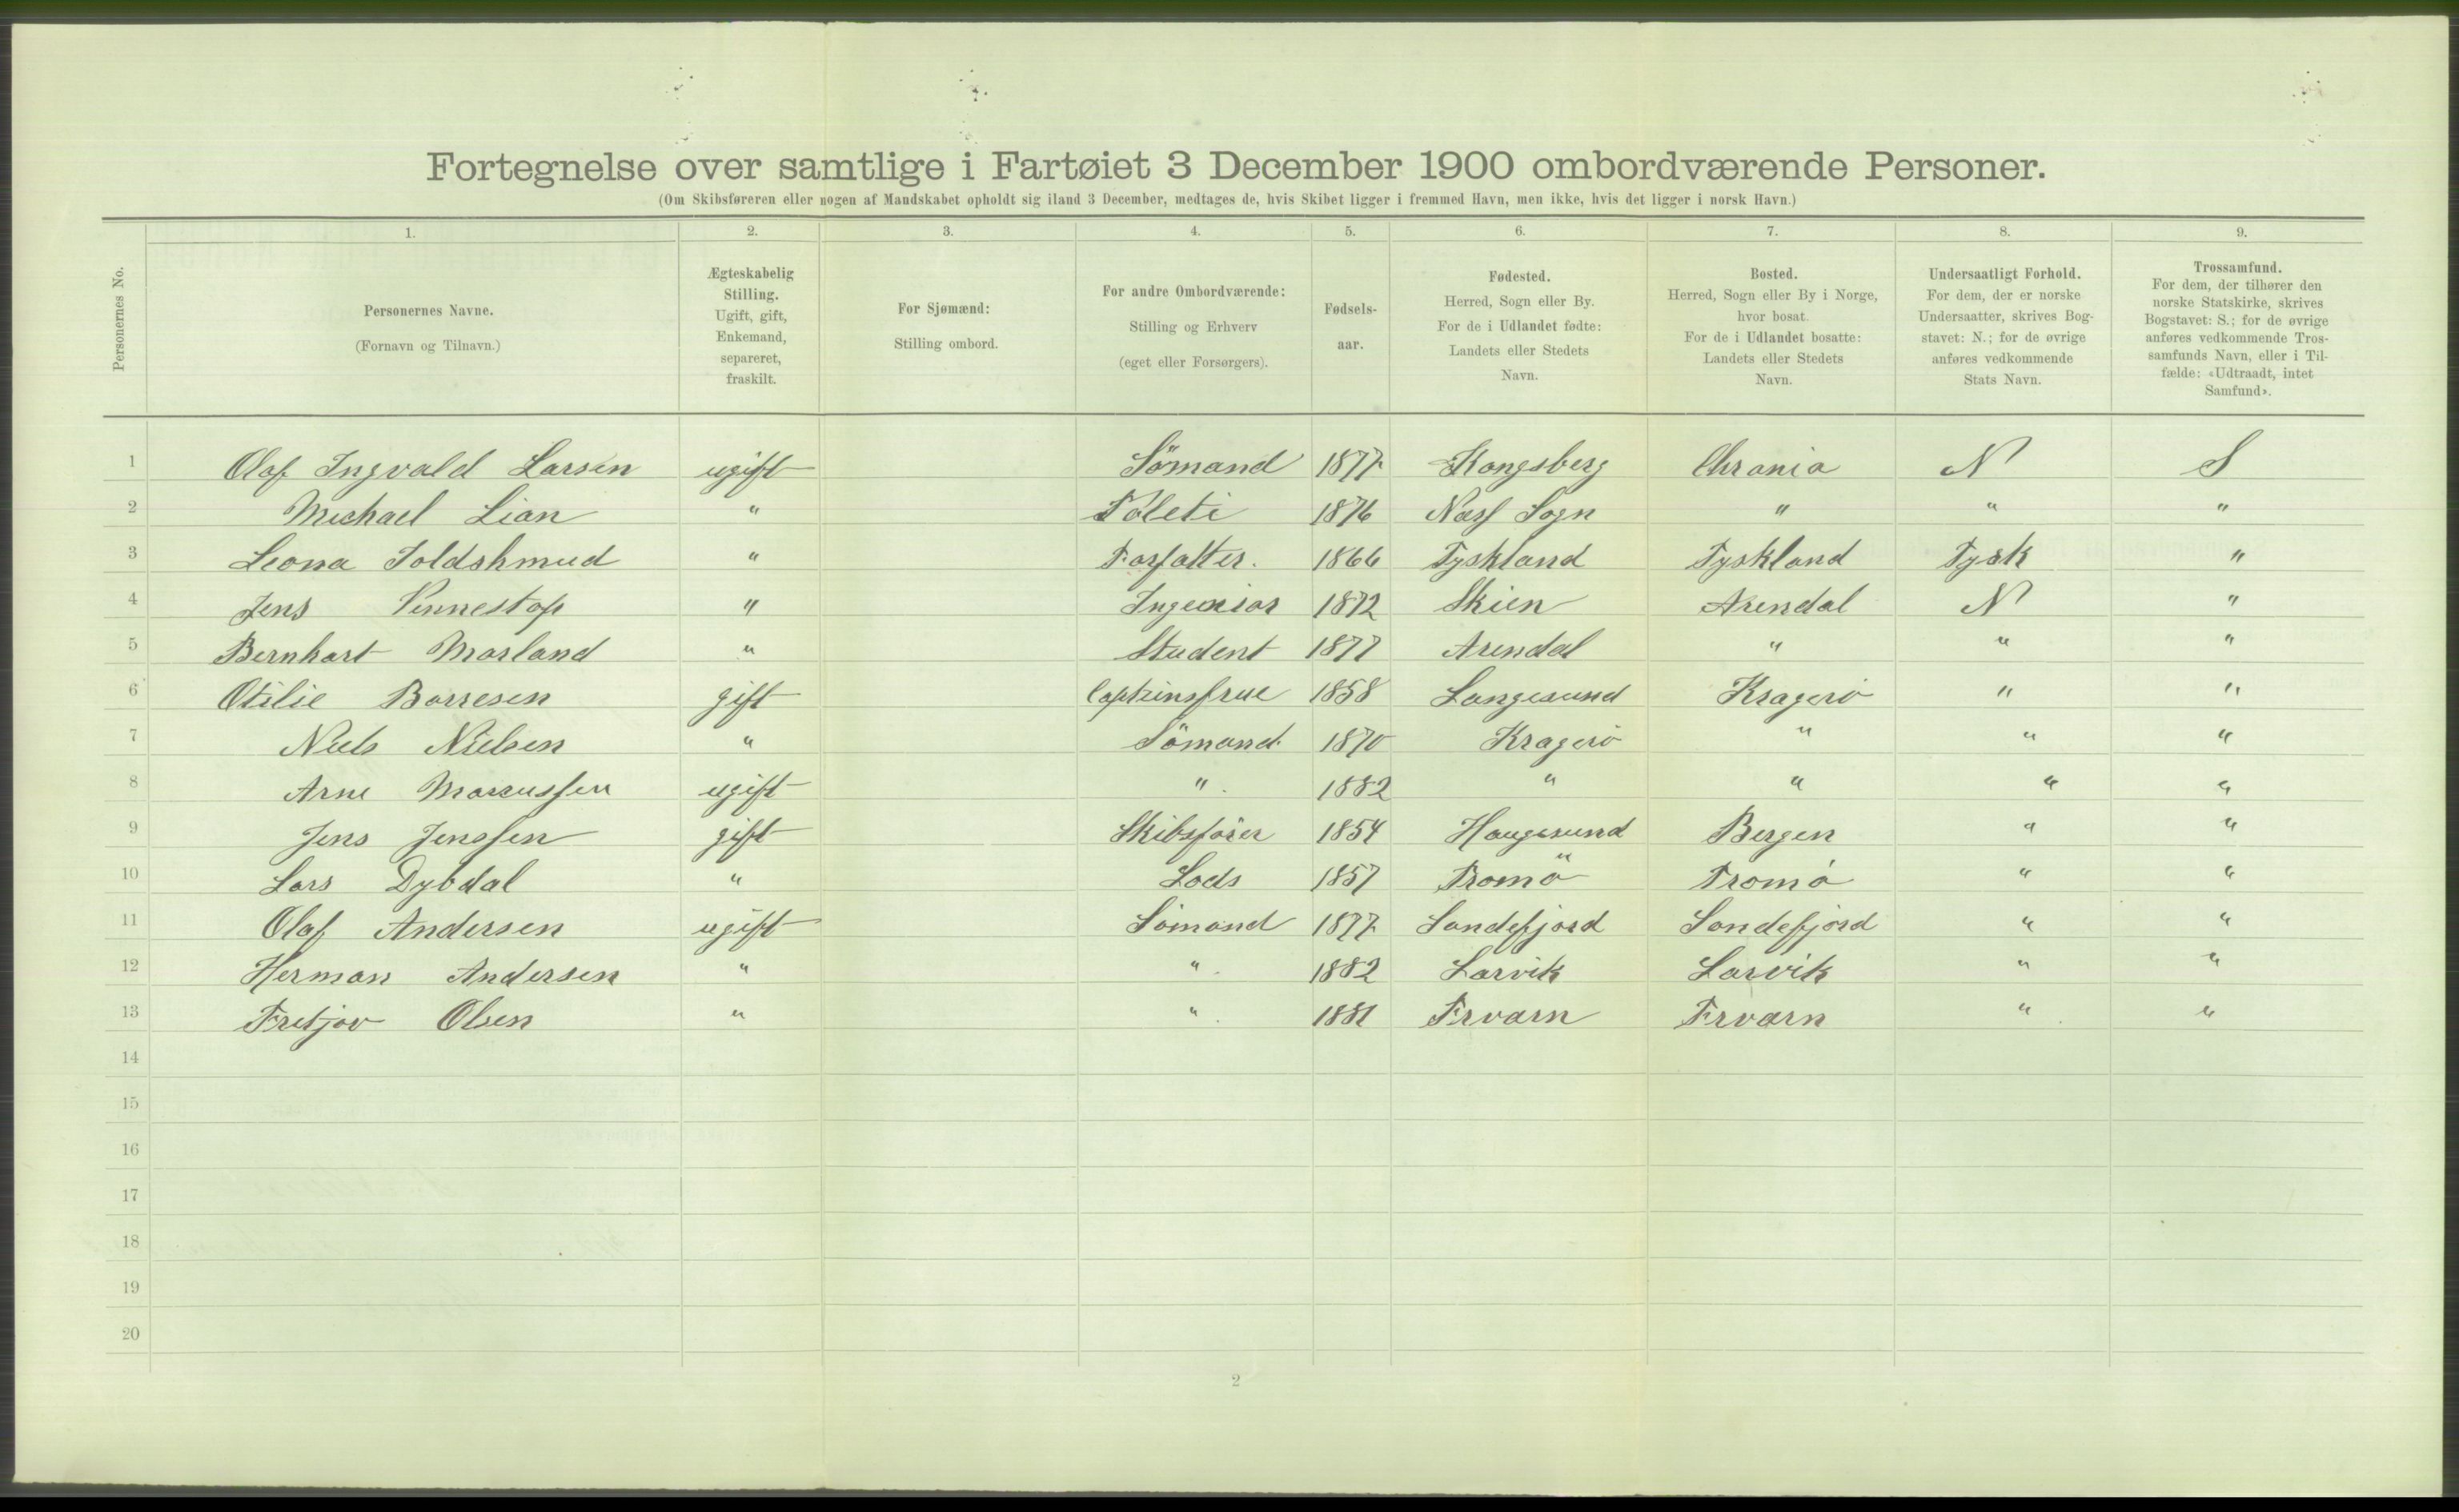 Fortegnelse over samtlige i Fartøiet 3 December 1900 ombordværende Personer.
(Om Skibsføreren eller nogen af Mandskabet opholdt sig iland 3 December, medtages de, hvis Skibet ligger i fremmed Havn, men ikke, hvis det ligger i norsk Havn.)
Personernes No.
1. 2. 3. 4. 5. 6. 7. 8. 9.
Personernes Navne.
(Fornavn og Tilnavn.)
Ægteskabelig
Stilling.
Ugift, gift,
Enkemand,
separeret,
fraskilt.
For Sjømænd:
Stilling ombord.
For andre Ombordværende:
Stilling og Erhverv
(eget eller Forsørgers).
Fødsels-
aar.
Fødested.
Herred, Sogn eller By.
For de i Udlandet fødte:
Landets eller Stedets
Navn.
Bosted.
Herred, Sogn eller By i Norge,
hvor bosat.
For de i Udlandet bosatte:
Landets eller Stedets
Navn.
Undersaatligt Forhold.
For dem, der er norske
Undersaatter, skrives Bog-
stavet: N.; for de øvrige
anføres vedkommende
Stats Navn.
Trossamfund.
For dem, der tilhører den
norske Statskirke, skrives
Bogstavet: S.; for de øvrige
anføres vedkommende Tros-
samfunds Navn, eller i Til-
fælde: «Udtraadt, intet
Samfund».
1 Olaf Ingvald Larsen ugift Sömand 1877 Kongsberg Chrania N S
2 Michael Lian " 1876 Næss Sogn " " "
3 Leona Goldshmud " Forfatter. 1866 Tyskland Tyskland Tysk "
4 Jens Vennestop " Ingeniør 1872 Skien Arendal N "
5 Bernhart Marland " Student 1877 Arendal " " "
6 Otilie Borresen gift Capteinsfrue 1858 Langesund Kragerö " "
7 Niels Nielsen " Sömand 1870 Kragerö " " "
8 Arne Marcussen ugift " 1882 " " " "
9 Jens Jenssen gift Skibsförer 1854 Haugesund Bergen " "
10 Lars Dybdal " Lods 1857 Tromö Tromö " "
11 Olaf Andersen ugift Sömand 1877 Sandefjord Sandefjord " "
12 Herman Andersen " " 1882 Larvik Larvik " "
13 Fretjov Olsen " " 1881 " "
14
15
16
17
18
19
20
2